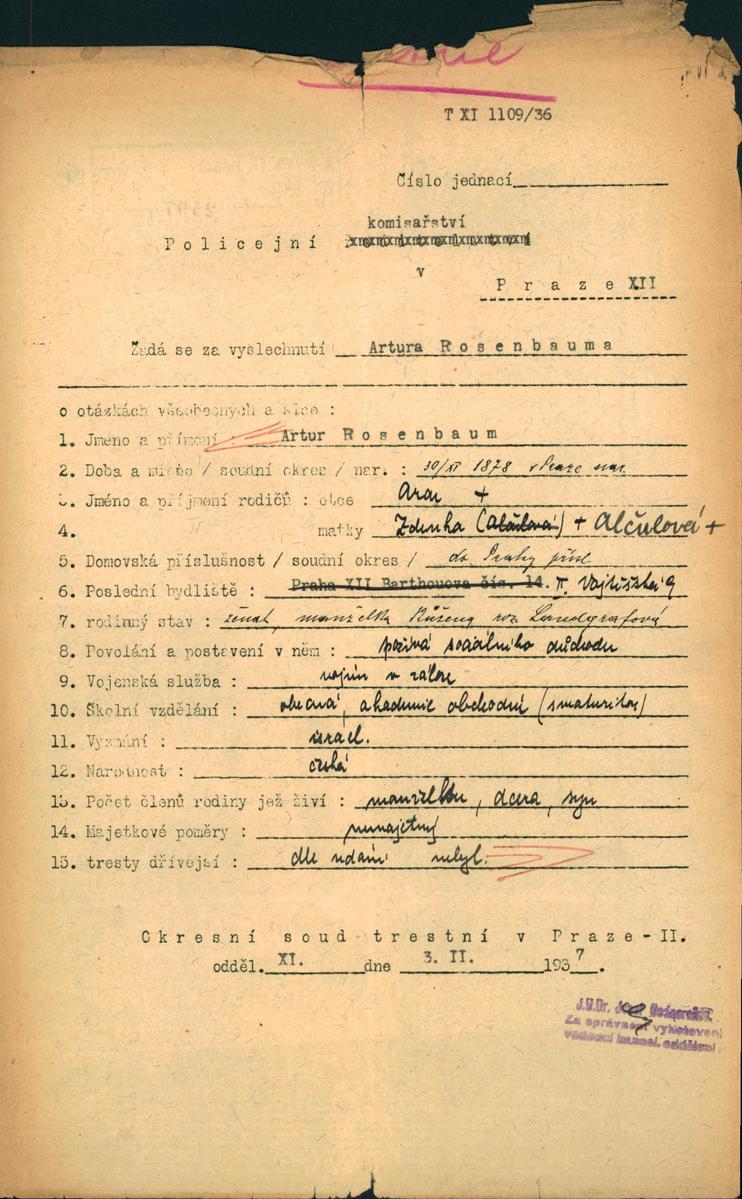 T XI 1109/36
Číslo jednací
komisařství
Policejní
v
Praze XII
Žádá se za vyslechnutí Artura Rosenbauma
o otázkách všeobecných a sice :
1. Jmeno a přímení : Artur Rosenbaum
2. Doba a místo / soudní okres / nar. : 30/XI 1878 v Praze nar.
3. Jméno a příjmení rodičů : otce Aron +
4. matky Zdenka (Alčulová) + Alčulová +
5. Domovská příslušnost / soudní okres / do Prahy přísl
6. Poslední bydliště : Praha XII Barthouova čís. 14. II. Vojtěšská 9
7. rodinný stav : ženat, manželka Růžena roz. Landgrafová
8. Povolání a postavení v něm : požívá sociálního důchodu
9. Vojenská služba : vojín v záloze
10. Školní vzdělání : obecná, akademie obchodní (s maturitou)
11. Vyznání : israel.
12. Národnost : česká
13. Počet členů rodiny jež živí : manželku, dcera, syn
14. Majetkové poměry : nemajetný
15. tresty dřívejší : dle udání nebyl.
Okresní soud trestní v Praze-II.
odděl. XI. dne 3. II. 1937.
J.U.Dr.
Za správnost vyhotovení
vedoucí kancel. oddělení